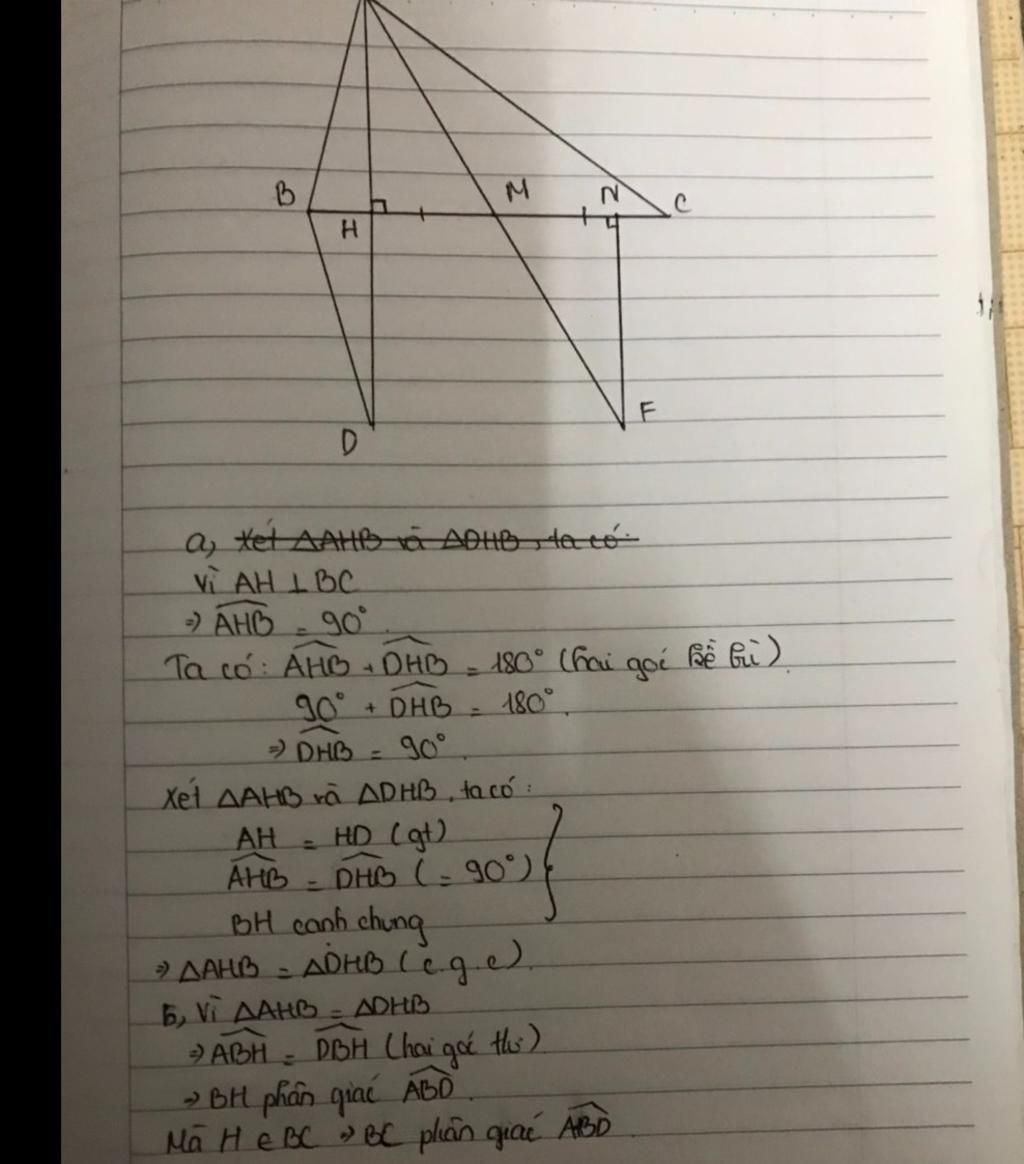 B
M
N
C
H
D
F
a, Xét ΔAHB và ΔDHB, ta có:
Vì AH ⊥ BC
=> \widehat{AHB} = 90°.
Ta có: \widehat{AHB} + \widehat{DHB} = 180° (hai goć kề bù).
90° + \widehat{DHB} = 180°.
=> \widehat{DHB} = 90°.
Xét ΔAHB và ΔDHB, ta có:
AH = HD (gt)
\widehat{AHB} = \widehat{DHB} (= 90°)
BH cạnh chung
=> ΔAHB = ΔDHB (c.g.c).
b, Vì ΔAHB = ΔDHB
=> \widehat{ABH} = \widehat{DBH} (hai goć tư)
=> BH phân giać \widehat{ABD}.
Mà H ∈ BC => BC phân giać \widehat{ABD}.